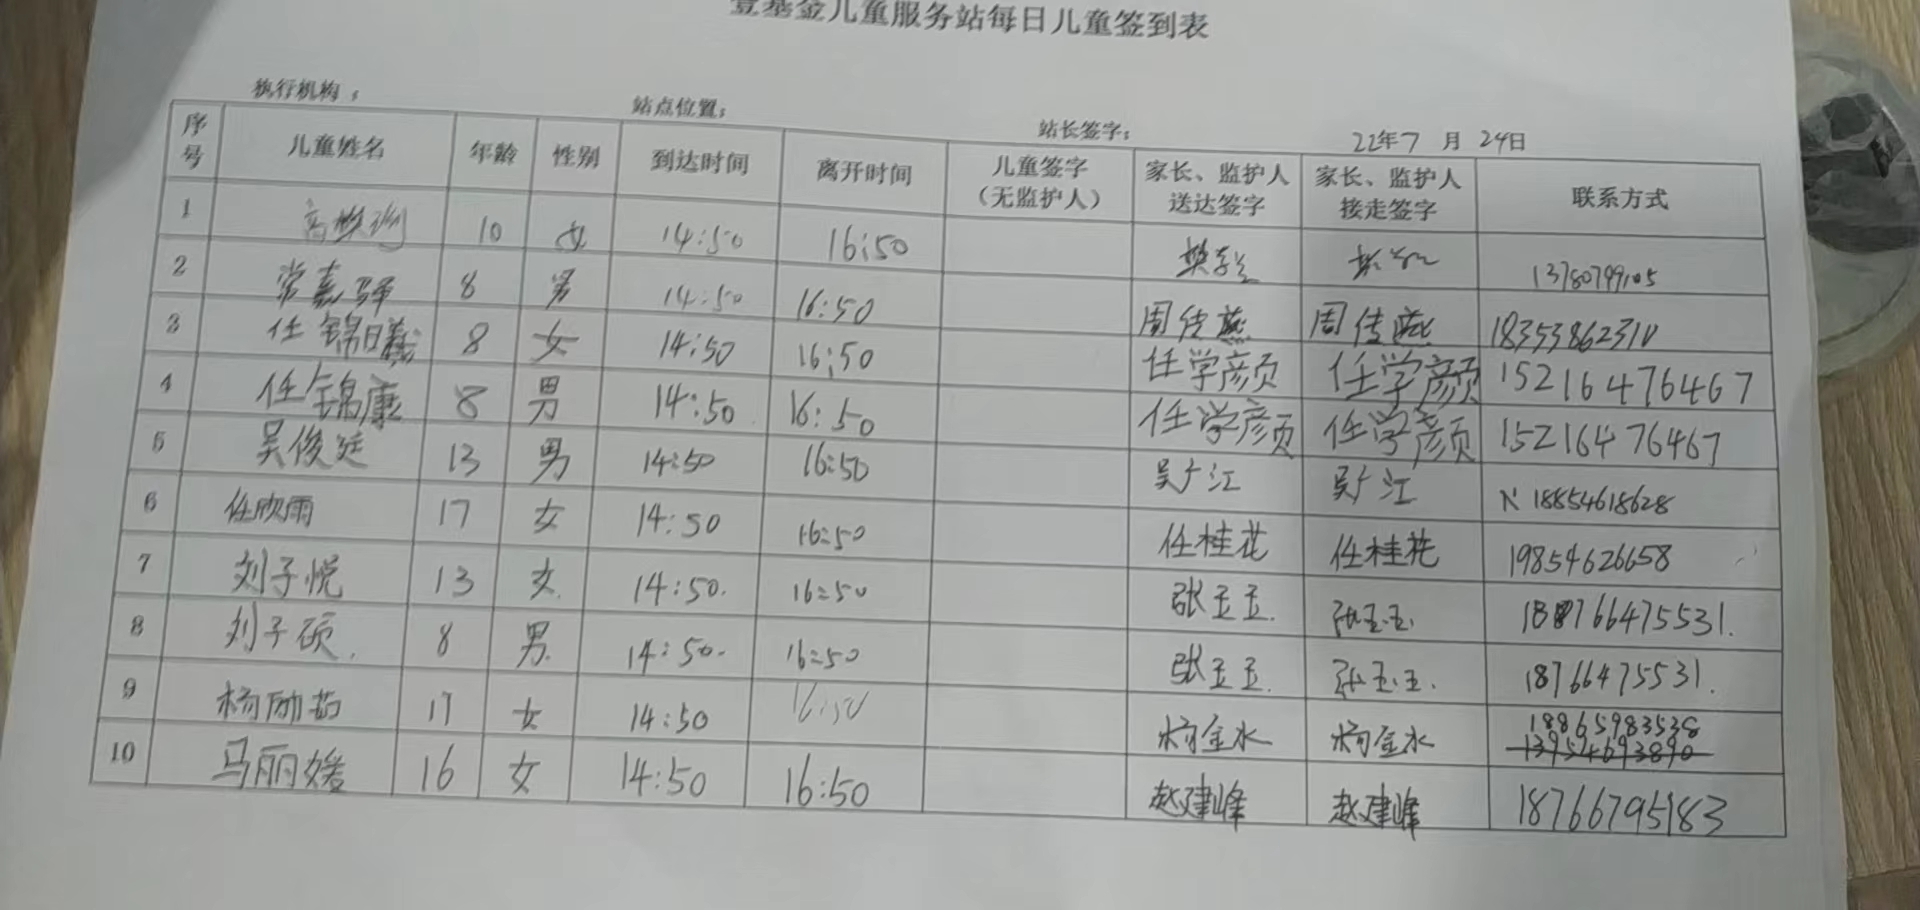 壹基金儿童服务站每日儿童签到表
执行机构： 站点位置： 站长签字： 22年7月24日
序号 儿童姓名 年龄 性别 到达时间 离开时间 儿童签字（无监护人） 家长、监护人送达签字 家长、监护人接走签字 联系方式
1 10 女 14:50 16:50 13780799105
2 常嘉驿 8 男 14:50 16:50 周传燕 周传燕 18353862310
3 任锦曦 8 女 14:50 16:50 任学颜 任学颜 15216476467
4 任锦康 8 男 14:50 16:50 任学颜 任学颜 15216476467
5 吴俊廷 13 男 14:50 16:50 吴广江 吴广江 18854618628
6 任欣雨 17 女 14:50 16:50 任桂花 任桂花 19854626658
7 刘子悦 13 女 14:50. 16:50 张玉玉. 张玉玉. 18766475531.
8 刘子硕. 8 男. 14:50. 16:50 张玉玉. 张玉玉. 18766475531.
9 杨励茹 17 女 14:50 16:50 杨金水 杨金水 18865983538
13954693890
10 马丽媛 16 女 14:50 16:50 赵建峰 赵建峰 18766795183